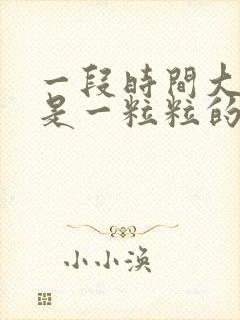 一段時間大
是一粒粒的
小小渙